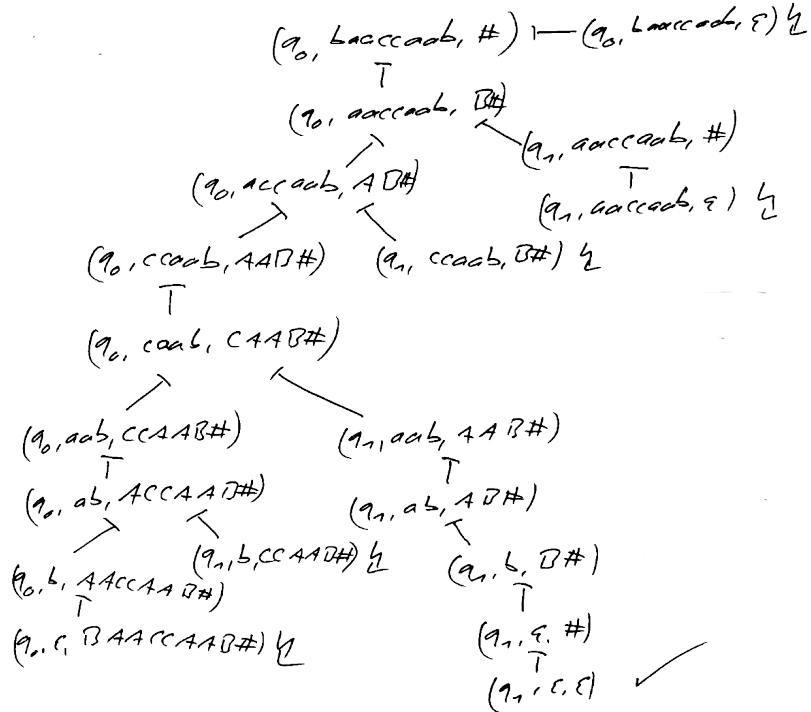 (q₀, baaccaab, #) ⊢ (q₀, baaccaab, ε) ↯
(q₀, aaccaab, B#)
(q₁, aaccaab, #)
(q₀, accaab, AB#)
(q₁, aaccaab, ε) ↯
(q₀, ccaab, AAB#) (q₁, ccaab, B#) ↯
(q₀, caab, CAAB#)
(q₀, aab, CCAAB#) (q₁, aab, AAB#)
(q₀, ab, ACCAAB#) (q₁, ab, AB#)
(q₀, b, AACCAAB#) (q₁, b, CCAAB#) ↯ (q₁, b, B#)
(q₀, ε, BAACCAAB#) ↯ (q₁, ε, #)
(q₁, ε, ε) ✓